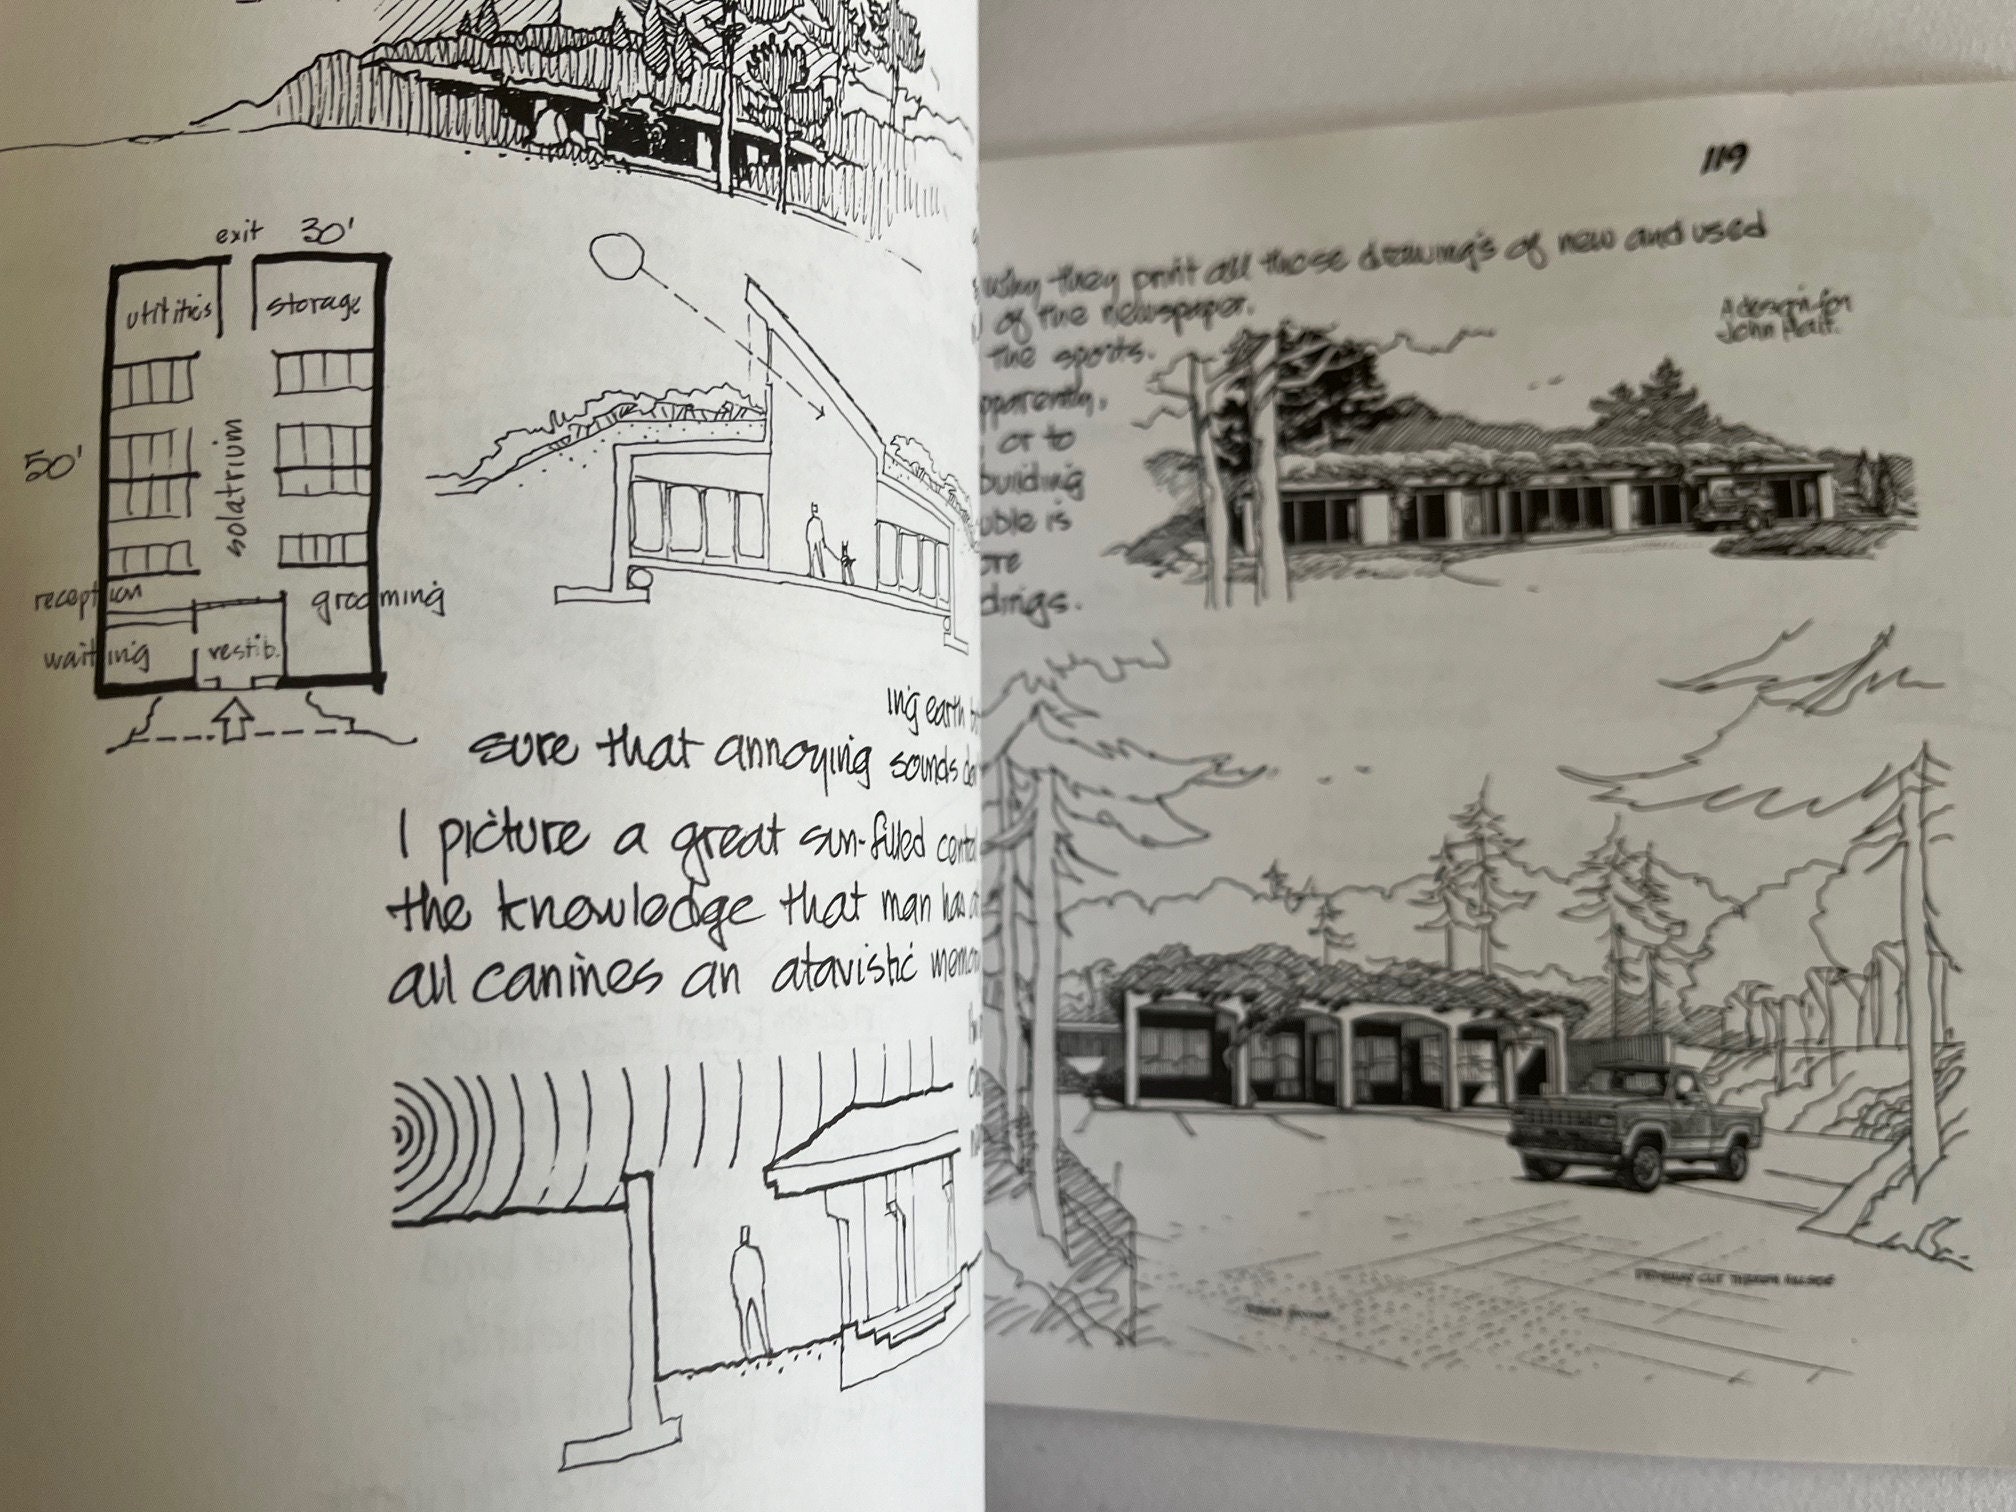 exit 30'
utilities storage
50'
solatrium
reception
grooming
waiting
vestib.
ing earth
sure that annoying sounds
I picture a great sun-filled
the knowledge that man has
all canines an atavistic
119
why they print all those drawings of new and used
of the newspaper.
the sports.
or to
building
is
A design for
John Hait.